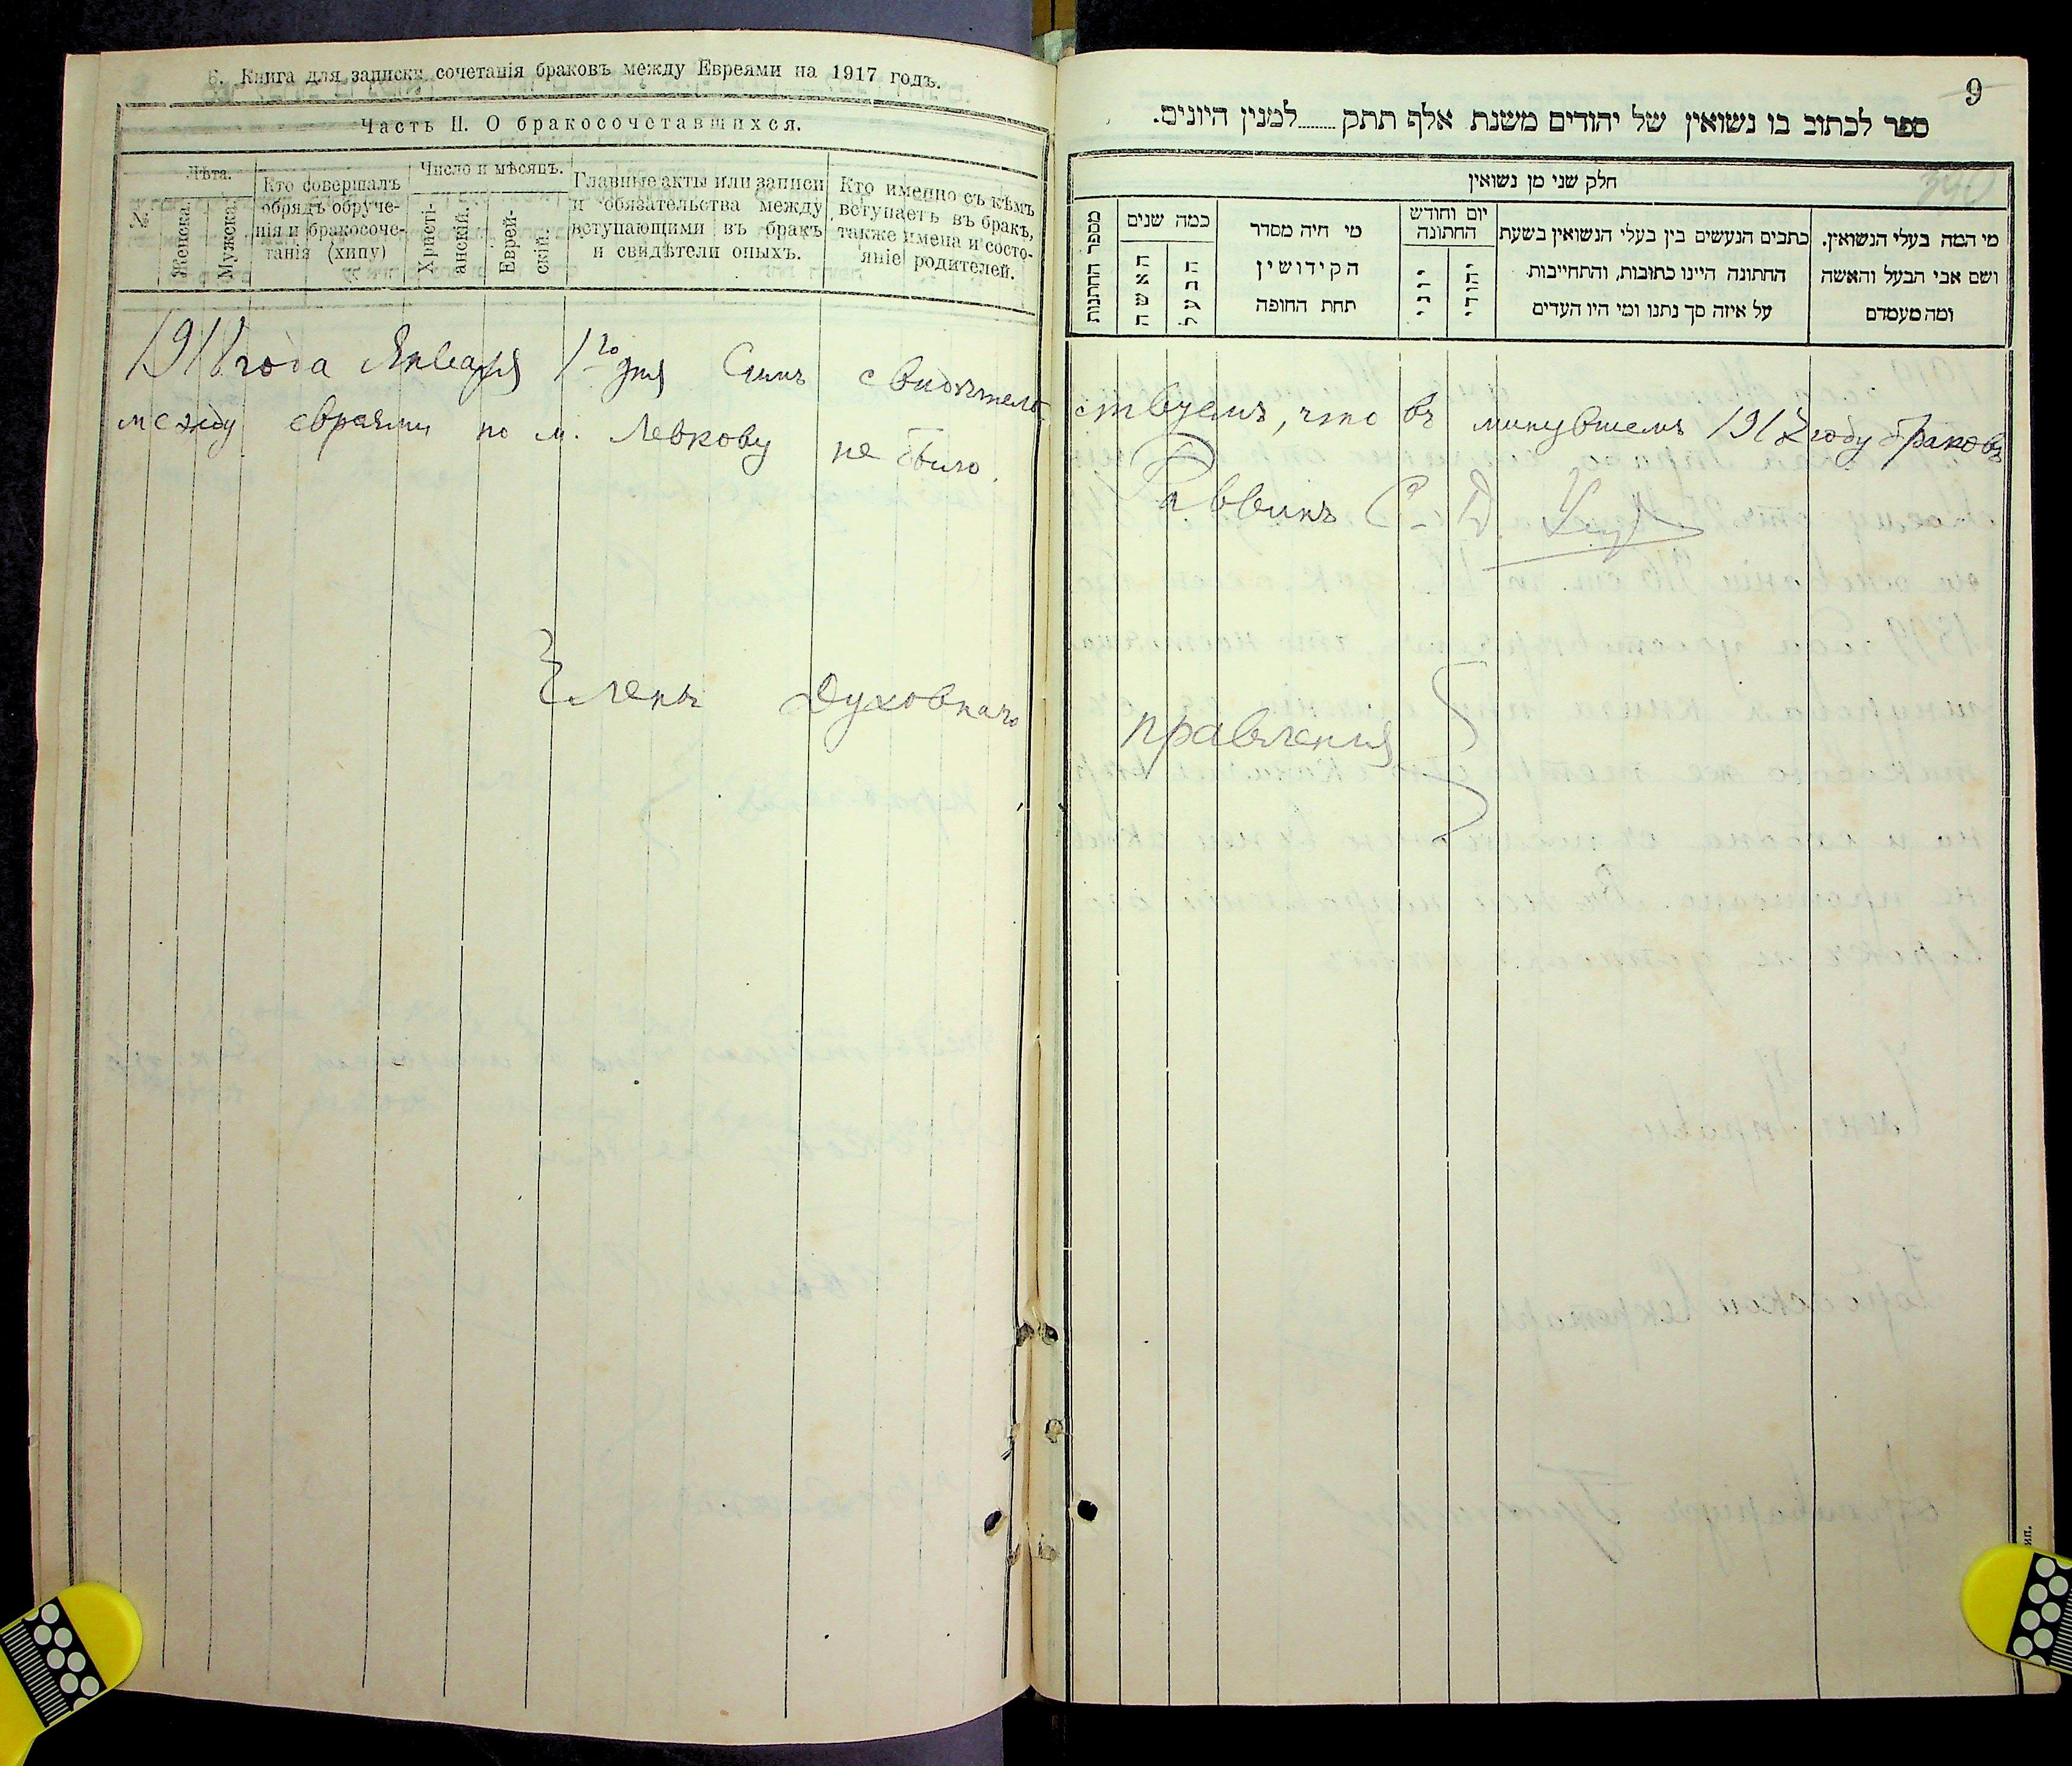 6. Книга для записки сочетанія браковъ между Евреями на 1917 годъ.
Часть II. О бракосочетавшихся.
№
Лѣта.
Женска.
Мужска.
Кто совершалъ
обрядъ обруче-
нія и бракосоче-
танія (хипу)
Число и мѣсяцъ.
Христі-
анскій.
Еврей-
скій.
Главные акты или записи
и обязательства между
вступающими въ бракъ
и свидѣтели оныхъ.
Кто именно съ кѣмъ
вступаетъ въ бракъ,
также имена и состо-
яніе родителей.
1918 года Января 1го дня Симъ свидѣтель
между евреями по м. Левкову не было.
Членъ Духовнаго
9
ספר לכתוב בו נשואין של יהודים משנת אלף תתק........למנין היונים.
340
חלק שני מן נשואין
מספר החתנות
כמה שנים
האשה
הבעל
מי היה מסדר
הקידושין
תחת החופה
יום וחודש
החתונה
יוני
יהודי
כתבים הנעשים בין בעלי הנשואין בשעת
החתונה היינו כתובות, והתחייבות
על איזה סך נתנו ומי היו העדים
מי המה בעלי הנשואין.
ושם אבי הבעל והאשה
ומה מעמדם
ствуемъ, что въ минувшемъ 1917 году браковъ
Раввинъ С. Д.
правленія